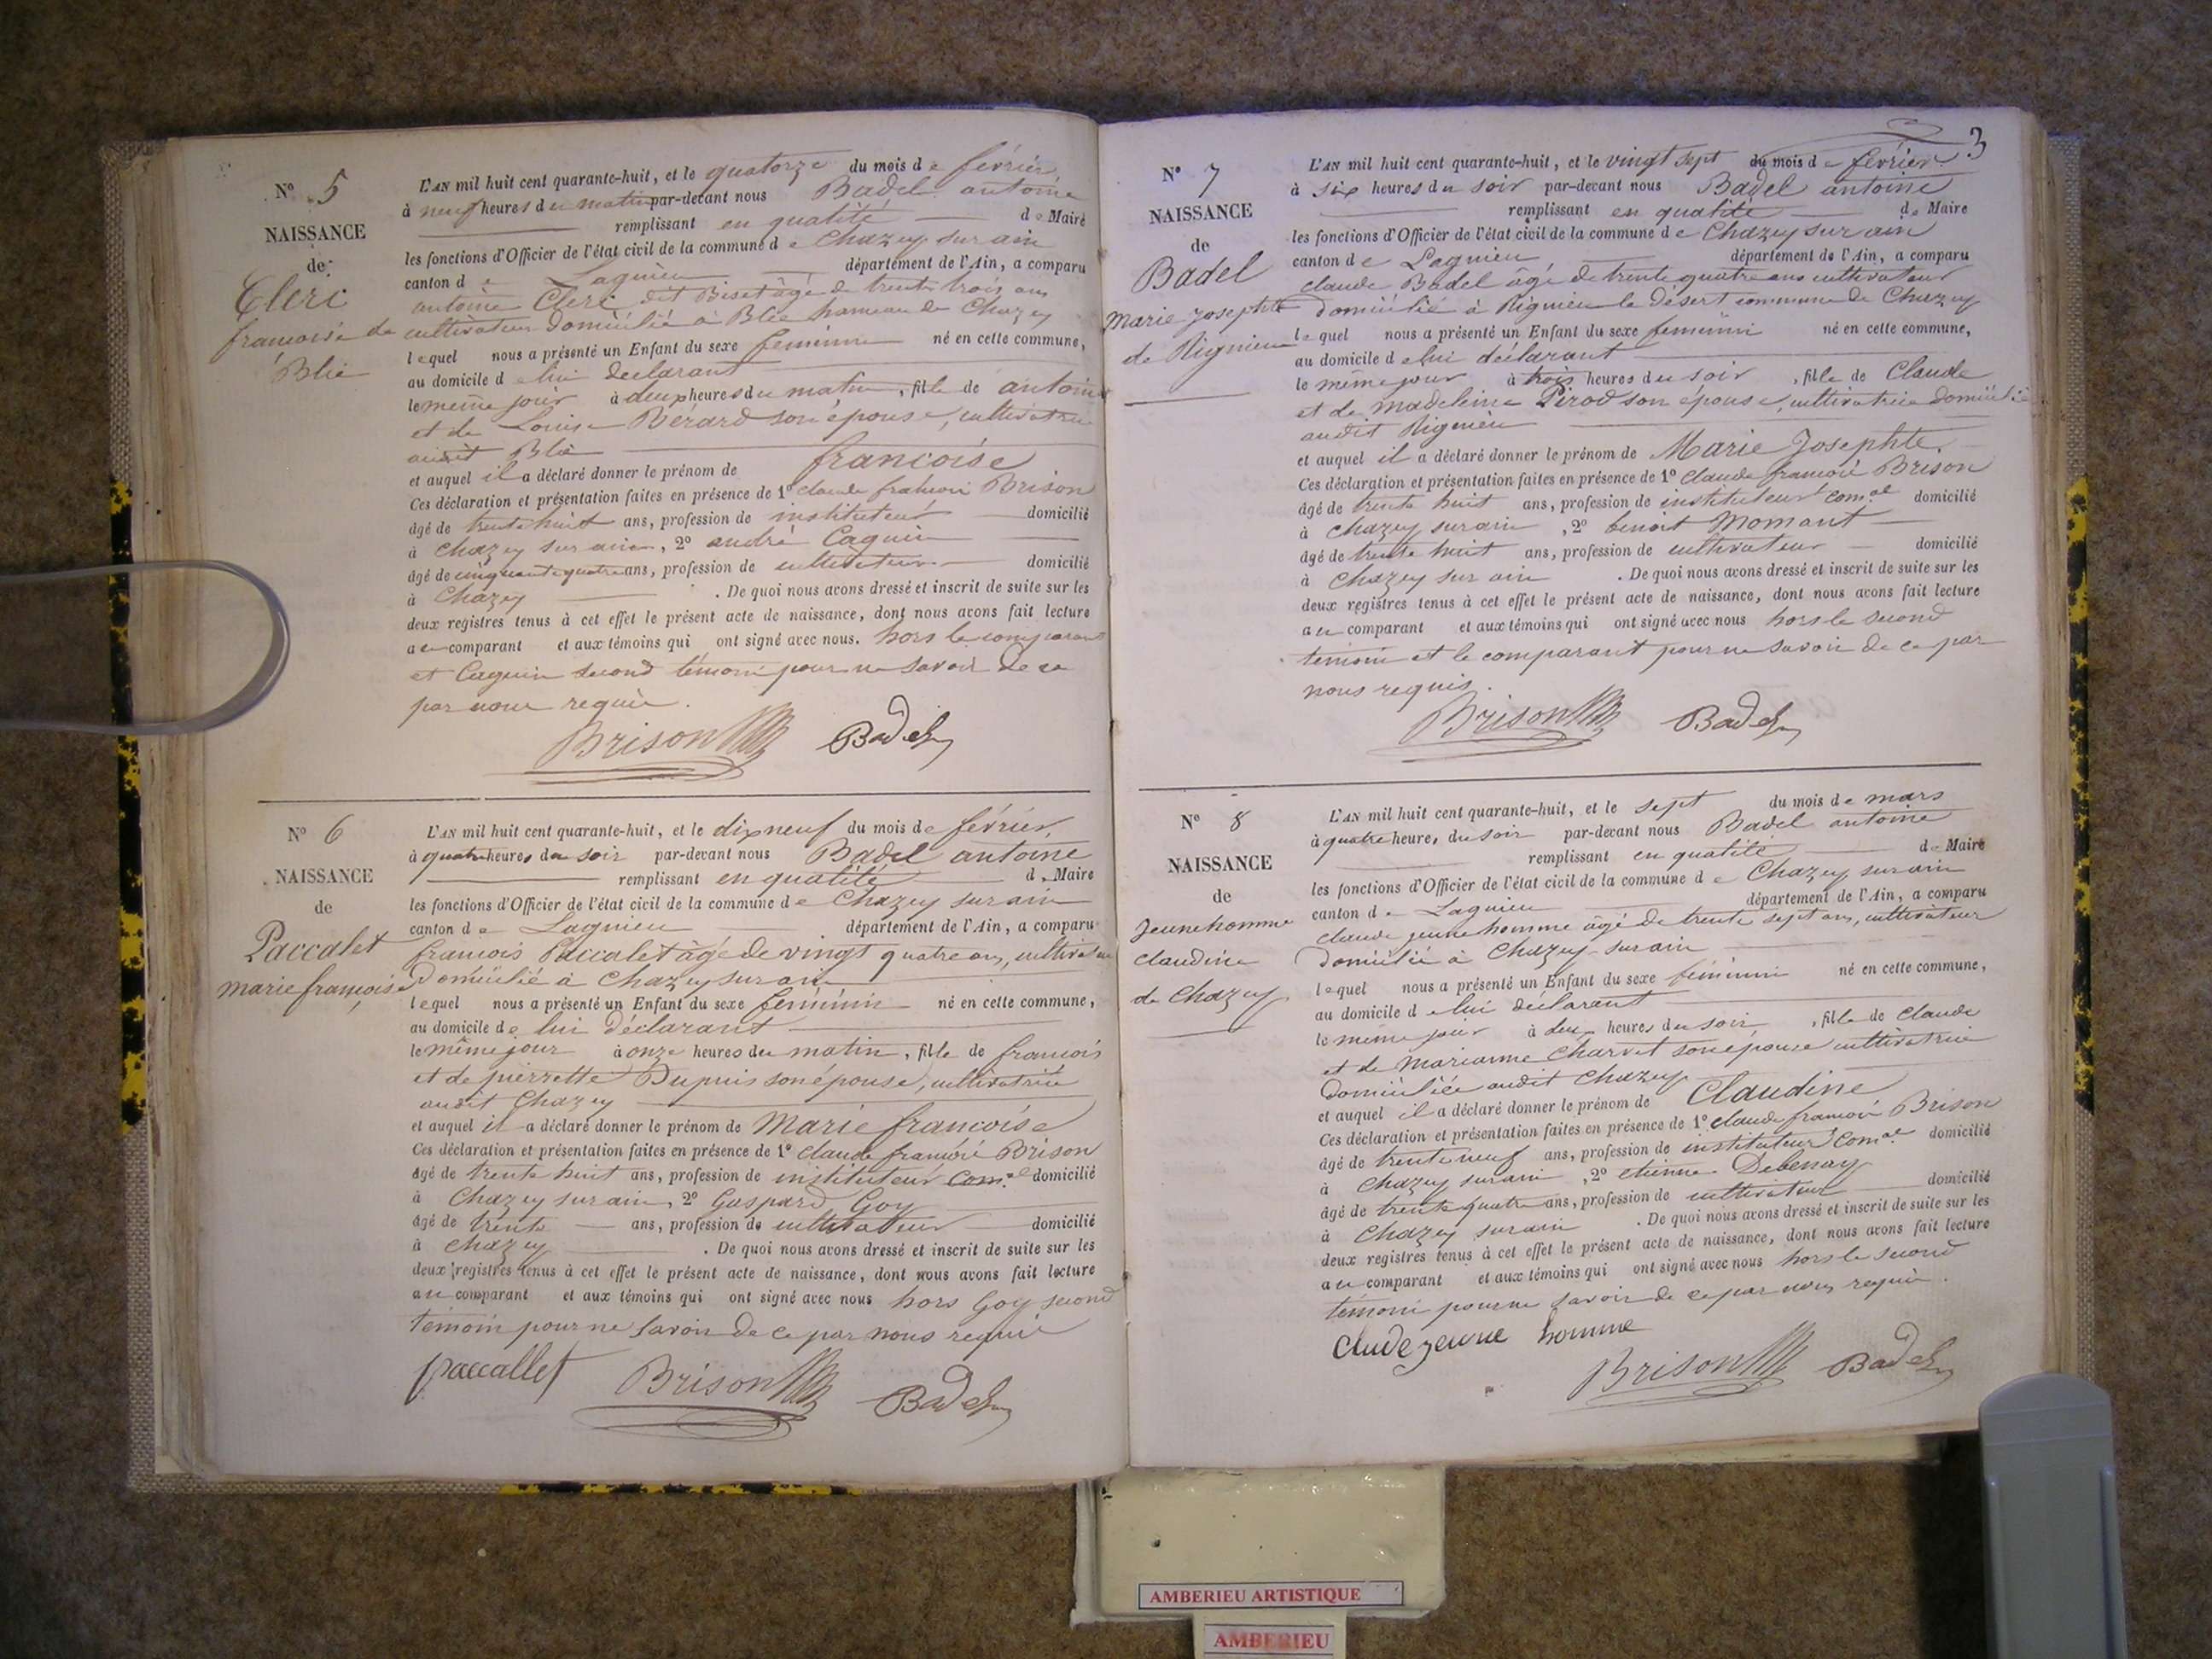 N° 5
NAISSANCE
de
Clerc
francoise de
Blie
L'AN mil huit cent quarante-huit, et le quatorze du mois de février
à neuf heures du matin par-devant nous Badel antoine
remplissant en qualité de Maire
les fonctions d'Officier de l'état civil de la commune de Chazey sur ain
canton de Lagnieu département de l'Ain, a comparu
antoine Clerc dit Biset âgé de trente trois ans
cultivateur domicilié à Blie hameau de Chazey
lequel nous a présenté un Enfant du sexe feminin né en cette commune,
au domicile de lui declarant
le même jour à deux heures du matin, fille de antoine
et de Louise Bérard son épouse, cultivatrice
audit Blie
et auquel il a déclaré donner le prénom de francoise
Ces déclaration et présentation faites en présence de 1° claude francois Brison
âgé de trente huit ans, profession de instituteur domicilié
à Chazey sur ain, 2° andré Caguin
âgé de cinquante quatre ans, profession de cultivateur domicilié
à Chazey . De quoi nous avons dressé et inscrit de suite sur les
deux registres tenus à cet effet le présent acte de naissance, dont nous avons fait lecture
au comparant et aux témoins qui ont signé avec nous. hors le comparant
et Caguin second témoin pour ne savoir de ce
par nous requis.
Brison Badel
N° 6
NAISSANCE
de
Paccalet
marie françoise
L'AN mil huit cent quarante-huit, et le dix neuf du mois de février,
à quatre heures du soir par-devant nous Badel antoine
remplissant en qualité de Maire
les fonctions d'Officier de l'état civil de la commune de Chazey sur ain
canton de Lagnieu département de l'Ain, a comparu
francois Paccalet âgé de vingt quatre ans, cultivateur
Domicilié à Chazey sur ain
lequel nous a présenté un Enfant du sexe féminin né en cette commune,
au domicile de lui déclarant
le même jour à onze heures du matin, fille de francois
et de pierrette Dupuis son épouse, cultivatrice
audit Chazey
et auquel il a déclaré donner le prénom de Marie francoise
Ces déclaration et présentation faites en présence de 1° claude francois Brison
âgé de trente huit ans, profession de instituteur com.al domicilié
à Chazey sur ain, 2° Gaspard Goy
âgé de trente ans, profession de cultivateur domicilié
à chazey . De quoi nous avons dressé et inscrit de suite sur les
deux registres tenus à cet effet le présent acte de naissance, dont nous avons fait lecture
au comparant et aux témoins qui ont signé avec nous hors Goy second
témoin pour ne savoir de ce par nous requis
paccallet Brison Badel
3
N° 7
NAISSANCE
de
Badel
marie josephte
de Rignieu
L'AN mil huit cent quarante-huit, et le vingt sept du mois de février
à six heures du soir par-devant nous Badel antoine
remplissant en qualité de Maire
les fonctions d'Officier de l'état civil de la commune de Chazey sur ain
canton de Lagnieu, département de l'Ain, a comparu
claude Badel âgé de trente quatre ans cultivateur
domicilié à Rignieu le désert commune de Chazey
lequel nous a présenté un Enfant du sexe feminin né en cette commune,
au domicile de lui déclarant
le même jour à trois heures du soir, fille de Claude
et de Madeleine Perod son épouse, cultivatrice domiciliée
audit Rignieu
et auquel il a déclaré donner le prénom de Marie Josephte
Ces déclaration et présentation faites en présence de 1° claude francois Brison
âgé de trente huit ans, profession de instituteur com.al domicilié
à Chazey sur ain, 2° benoit Momant
âgé de trente huit ans, profession de cultivateur domicilié
à Chazey sur ain . De quoi nous avons dressé et inscrit de suite sur les
deux registres tenus à cet effet le présent acte de naissance, dont nous avons fait lecture
au comparant et aux témoins qui ont signé avec nous hors le second
témoin et le comparant pour ne savoir de ce par
nous requis.
Brison Badel
N° 8
NAISSANCE
de
Jeunehomme
claudine
de Chazey
L'AN mil huit cent quarante-huit, et le sept du mois de mars
à quatre heures du soir par-devant nous Badel antoine
remplissant en qualité de Maire
les fonctions d'Officier de l'état civil de la commune de Chazey sur ain
canton de Lagnieu département de l'Ain, a comparu
claude jeune homme âgé de trente sept ans, cultivateur
Domicilié à Chazey sur ain
lequel nous a présenté un Enfant du sexe féminin né en cette commune,
au domicile de lui déclarant
le même jour à deux heures du soir, fille de claude
et de Marianne Charvet son épouse cultivatrice
Domiciliée audit Chazey
et auquel il a déclaré donner le prénom de Claudine
Ces déclaration et présentation faites en présence de 1° claude francois Brison
âgé de trente neuf ans, profession de instituteur com.al domicilié
à Chazey sur ain, 2° etienne Debenay
âgé de trente quatre ans, profession de cultivateur domicilié
à Chazey sur ain . De quoi nous avons dressé et inscrit de suite sur les
deux registres tenus à cet effet le présent acte de naissance, dont nous avons fait lecture
au comparant et aux témoins qui ont signé avec nous hors le second
témoin pour ne savoir de ce par nous requis.
Claude jeune homme
Brison Badel
AMBERIEU ARTISTIQUE
AMBERIEU